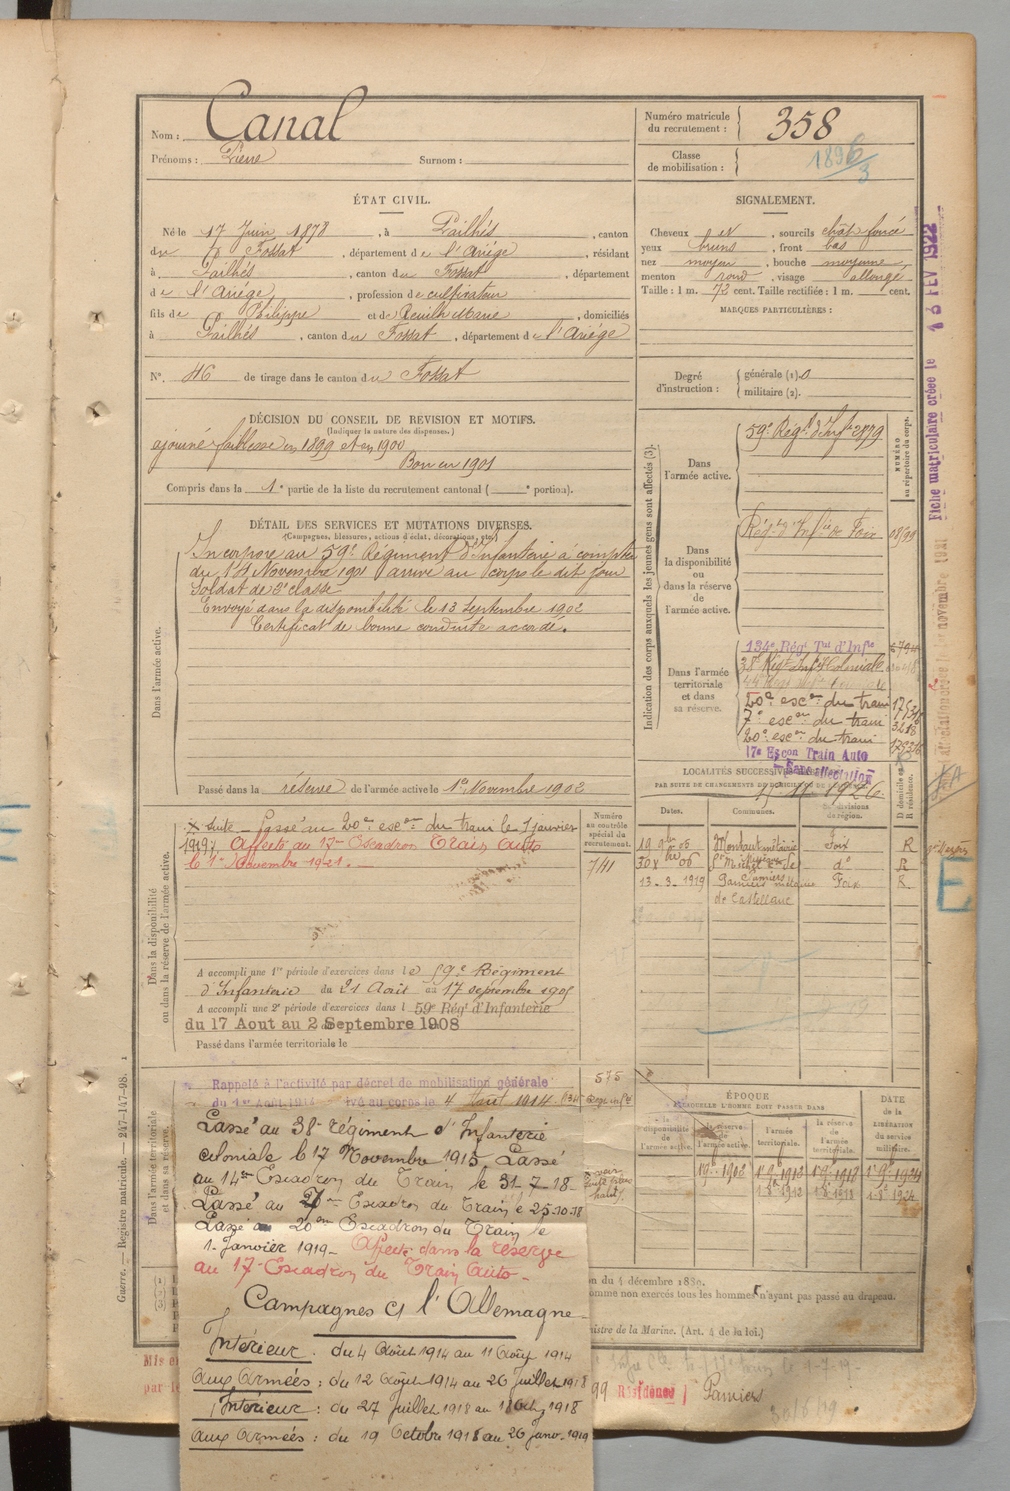 Nom : Canal
Prénoms : Pierre Surnom :
Numéro matricule du recrutement : 358
Classe de mobilisation : 1896/3
ÉTAT CIVIL.
Né le 17 Juin 1878, à Pailhés, canton
du Fossat, département de l'Ariége, résidant
à Pailhés, canton du Fossat, département
de l'Ariége, profession de cultivateur
fils de Philippe et de Rouilh Marie, domiciliés
à Pailhés, canton du Fossat, département de l'Ariége
N°. 46 de tirage dans le canton du Fossat
SIGNALEMENT.
Cheveux et, sourcils chât foncé
yeux bruns, front bas
nez moyen, bouche moyenne,
menton rond, visage allongé
Taille : 1 m. 72 cent. Taille rectifiée : 1 m. cent.
MARQUES PARTICULIÈRES :
Degré d'instruction : générale (1). 0
militaire (2).
DÉCISION DU CONSEIL DE REVISION ET MOTIFS.
(Indiquer la nature des dispenses.)
ajourné faiblesse en 1899 et en 1900
Bon en 1901
Compris dans la 1e partie de la liste du recrutement cantonal ( portion).
DÉTAIL DES SERVICES ET MUTATIONS DIVERSES.
(Campagnes, blessures, actions d'éclat, décorations, etc.)
Dans l'armée active.
Incorporé au 59e Régiment d'Infanterie à compter
du 14 Novembre 1901 arrivé au corps le dit jour
Soldat de 2e classe
Envoyé dans la disponibilité le 13 Septembre 1902
Certificat de bonne conduite accordé.
Passé dans la réserve de l'armée active le 1er Novembre 1902
Indication des corps auxquels les jeunes gens sont affectés (3).
NUMÉRO au répertoire du corps.
Dans l'armée active.
59e Régt d'Infie 2899
Dans la disponibilité ou dans la réserve de l'armée active.
Régt d'Infie de Foix
Dans l'armée territoriale et dans sa réserve.
134e Régt Tal d'Infie
38e Régt Infie Coloniale
20e escon du train
7e escon du train
20e escon du train
17e Escon Train Auto
Sans affectation
Fiche matriculaire créée le 18 FEV 1922
LOCALITÉS SUCCESSIVES
PAR SUITE DE CHANGEMENTS DE DOMICILE OU DE
Dates. Communes. Subdivisions de région. Domicile ou Résidence.
19 9bre 05 Foix R
30 Xbre 06 do R
13-3-1919 Pamiers Foix R
de Castellane
Dans la disponibilité ou dans la réserve de l'armée active.
Numéro au contrôle spécial du recrutement.
X Suite - Passé au 20e escon du train le 1 janvier
1919. Affecté au 17me Escadron Train Auto
le 1er Novembre 1921.
741
A accompli une 1re période d'exercices dans le 59e Régiment
d'Infanterie du 21 Août au 17 septembre 1905
A accompli une 2e période d'exercices dans l 59e Régt d'Infanterie
du 17 Aout au 2 Septembre 1908
Passé dans l'armée territoriale le
Dans l'armée territoriale et dans sa réserve.
Rappelé à l'activité par décret de mobilisation générale
du 1er Août 1914 4 Août 1914
575
Passé au 38e régiment d'Infanterie
coloniale le 17 Novembre 1915 Passé
au 14me Escadron du Train le 31-7-18-
Passé au Escadron du Train le 25-10-18
Passé au 20me Escadron du Train le
1er Janvier 1919- Affecté dans la réserve
au 17e Escadron du Train Auto-
Campagnes Ct l'Allemagne
Intérieur : du 4 Août 1914 au 11 Août 1914
Aux Armées : du 12 Août 1914 au 26 Juillet 1918
Intérieur : du 27 Juillet 1918 au 18 Oct. 1918
Aux Armées : du 19 Octobre 1918 au 26 Janv. 1919
ÉPOQUE
À LAQUELLE L'HOMME DOIT PASSER DANS
la disponibilité de l'armée active.
la réserve de l'armée active.
l'armée territoriale.
la réserve de l'armée territoriale.
DATE de la LIBÉRATION du service militaire.
E
Guerre. — Registre matricule. — 247-147-98.
on du 4 décembre 1889.
omme non exercés tous les hommes n'ayant pas passé au drapeau.
nistre de la Marine. (Art. 4 de la loi.)
99 Résidence Pamiers